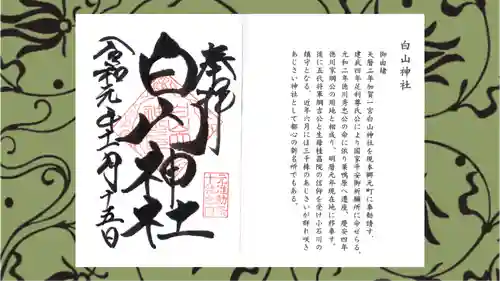 白山神社
御由緒
天暦二年加賀一宮白山神社を現本郷元町に奉勧請す。
建武四年足利尊氏公により国家平安御祈願所に命ぜらる。
元和二年徳川秀忠公の命に依り巣鴨原へ遷座、慶安四年
徳川家綱公の用地と相成り、明暦元年現在地に移奉す。
後に五代将軍綱吉公と生母桂昌院の信仰を受け小石川の
鎮守となる。近年六月には三千株のあじさいが群れ咲き
あじさい神社として都心の新名所でもある。
奉拝
白山神社
令和元年十一月十五日